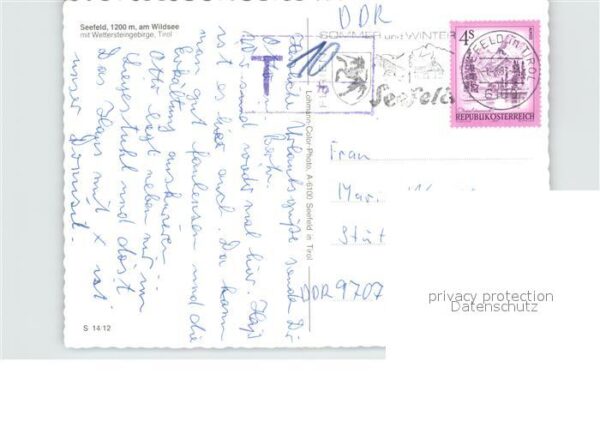 Seefeld, 1200 m, am Wildsee
mit Wettersteingebirge, Tirol
DDR
SOMMER und WINTER
Seefeld
T
10
4S
REPUBLIK ÖSTERREICH
SEEFELD IN TIROL
Lohmann-Color-Photo, A-6100 Seefeld in Tirol
Herzliche Urlaubsgrüße sendet Dir
Wir sind wieder mal hier.
ist es hier auch. Da kann
man gut faulenzen und die
Erkältung auskurieren.
Otto liegt neben mir im
Liegestuhl und döst
Das Haus mit x ist
unser Domizil.
Frau
DDR 9707
S 14:12
privacy protection
Datenschutz